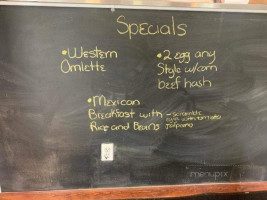 Specials
• Western
Omlette
• 2 egg any
Style w/corn
beef hash
• Mexican
Breakfast with
Rice and Beans
- scramble
eggs w/ tomato
Jalpano
menupix